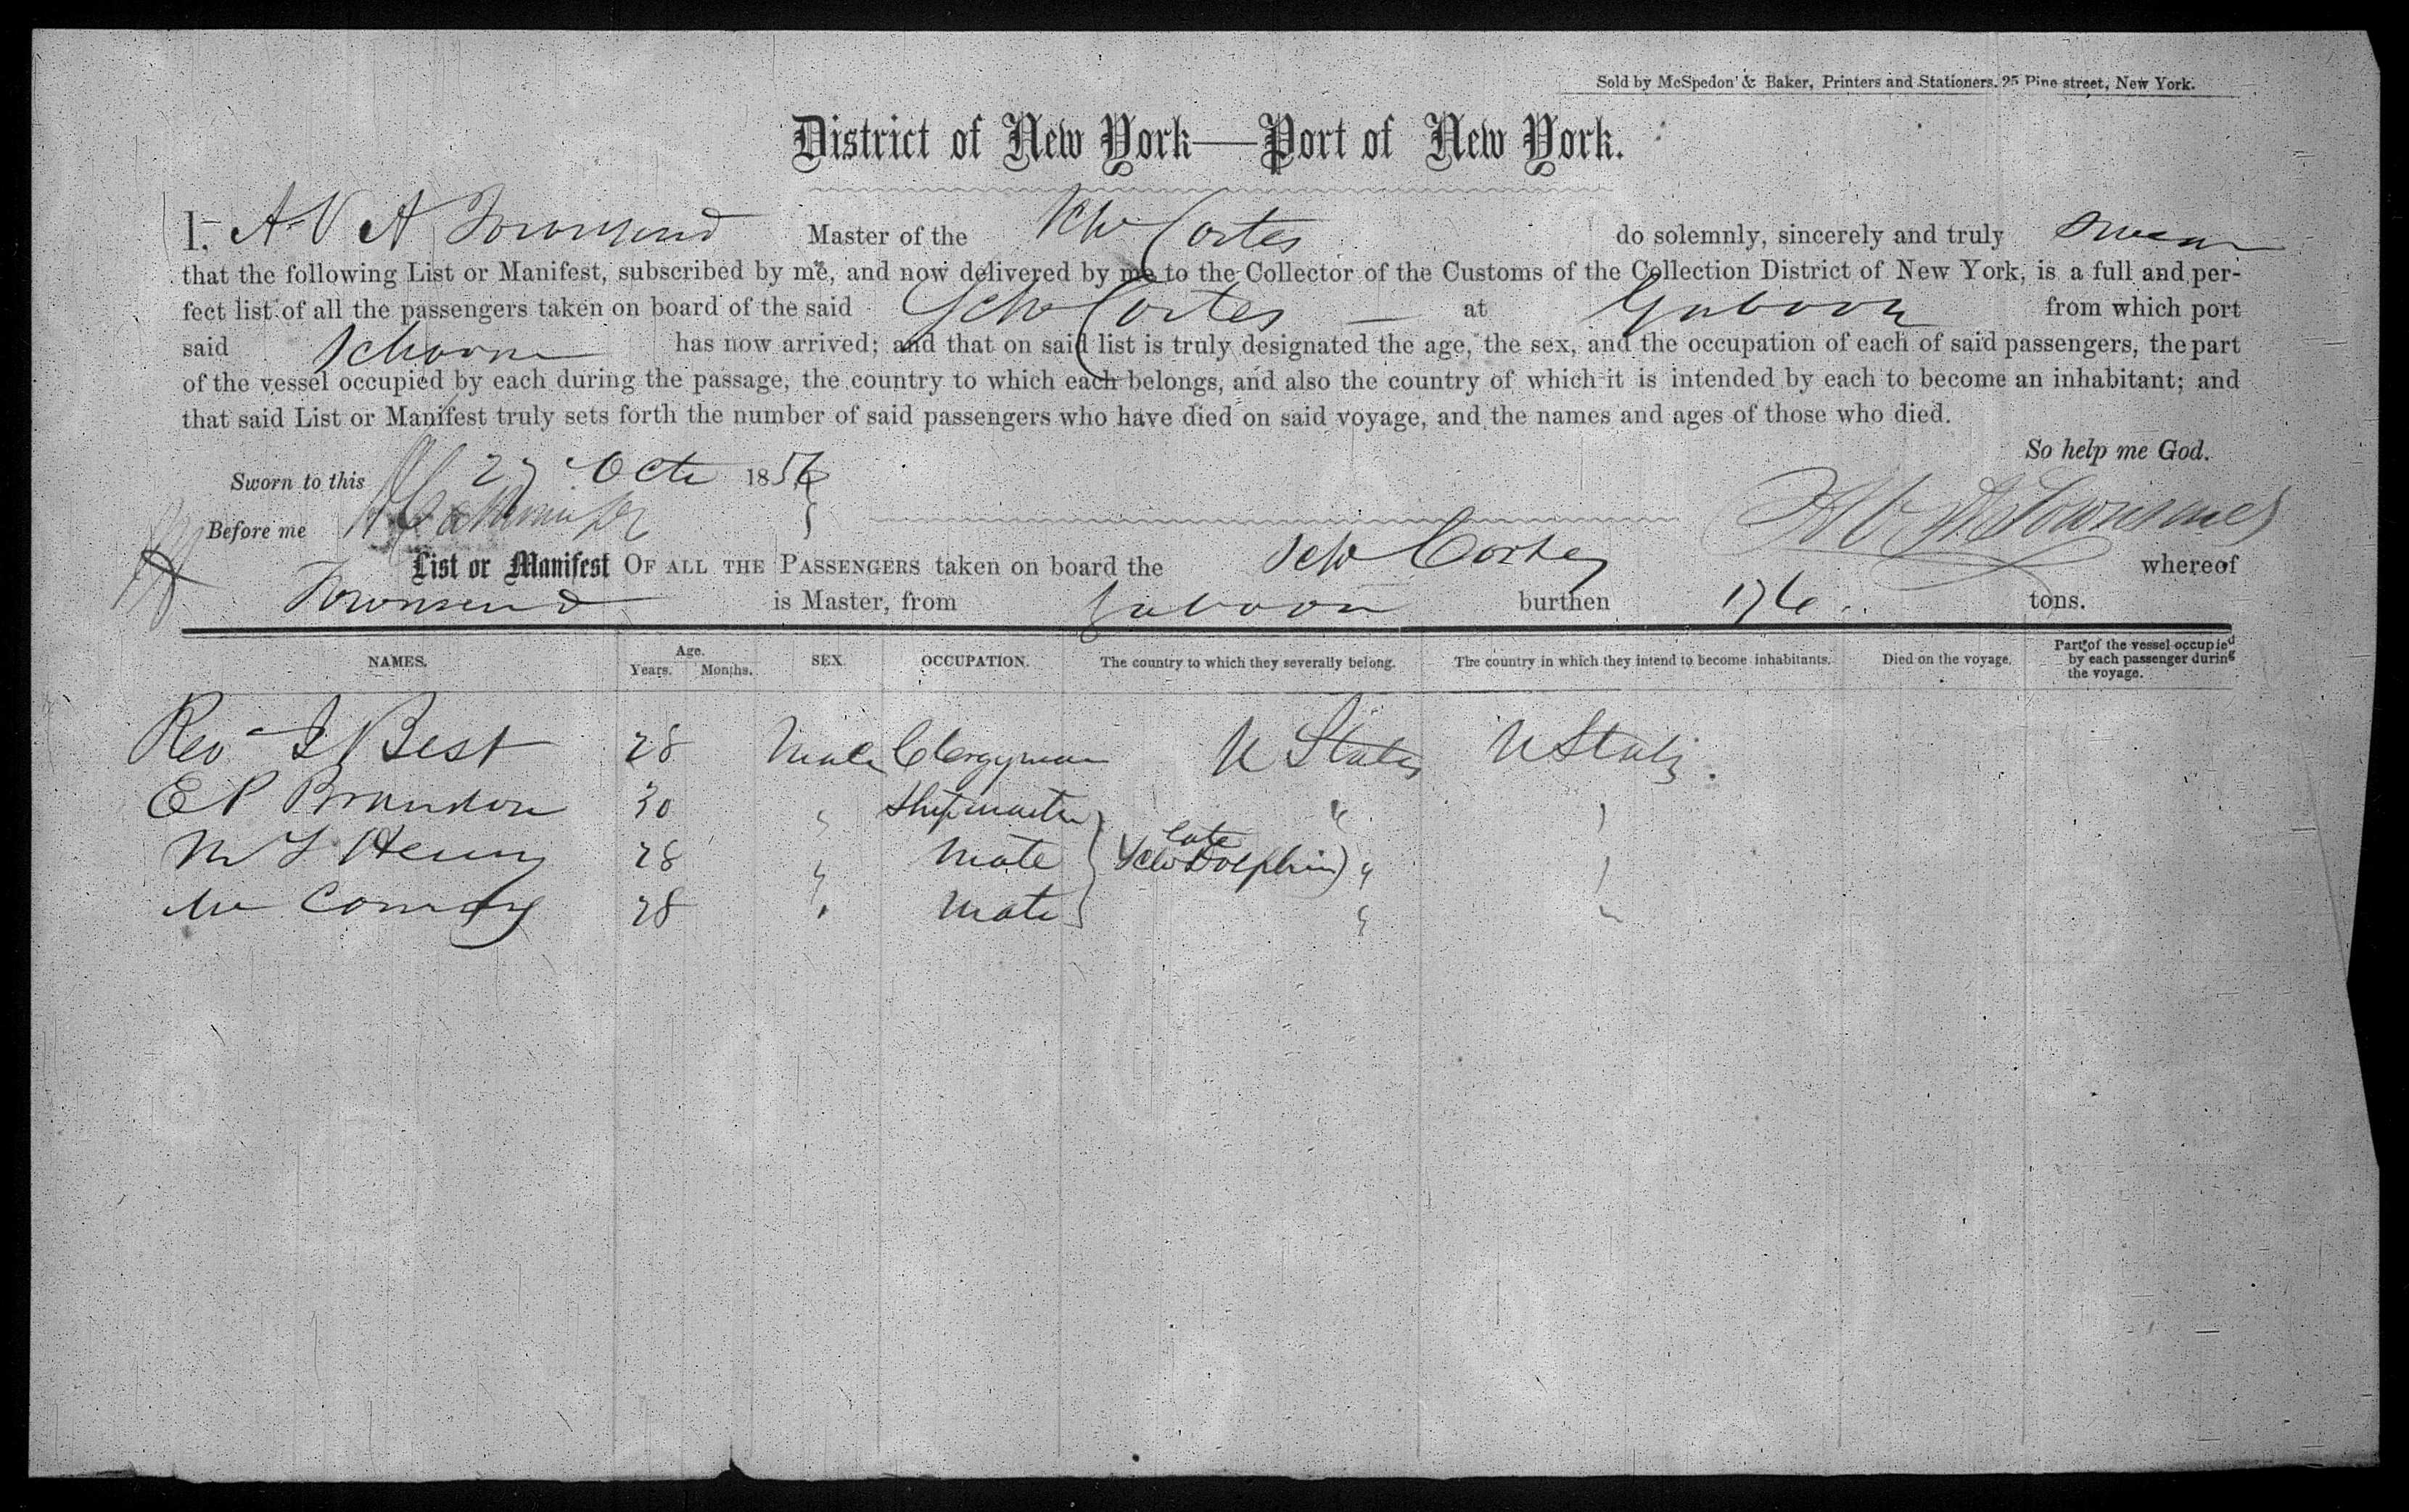 Sold by McSpedon & Baker, Printers and Stationers, 25 Pine street, New York.
District of New York—Port of New York.
I, A V A Townsend Master of the Schr Cortes do solemnly, sincerely and truly swear
that the following List or Manifest, subscribed by me, and now delivered by me to the Collector of the Customs of the Collection District of New York, is a full and per-
fect list of all the passengers taken on board of the said Schr Cortes — at Gaboon from which port
said Schooner has now arrived; and that on said list is truly designated the age, the sex, and the occupation of each of said passengers, the part
of the vessel occupied by each during the passage, the country to which each belongs, and also the country of which it is intended by each to become an inhabitant; and
that said List or Manifest truly sets forth the number of said passengers who have died on said voyage, and the names and ages of those who died.
So help me God.
Sworn to this 27 Octr 185
Before me
A V A Townsend
List or Manifest OF ALL THE PASSENGERS taken on board the Schr Cortes whereof
Townsend is Master, from Gaboon burthen 176 tons.
NAMES. Age. Years. Months. SEX. OCCUPATION. The country to which they severally belong. The country in which they intend to become inhabitants. Died on the voyage. Part of the vessel occupied by each passenger during the voyage.
Rev J Best 28 Male Clergyman U States U States.
E P Brandon 30 " Shipmaster " "
M L Henry 28 " Mate late Schr Dolphin) " "
Mr 28 " Mate " "